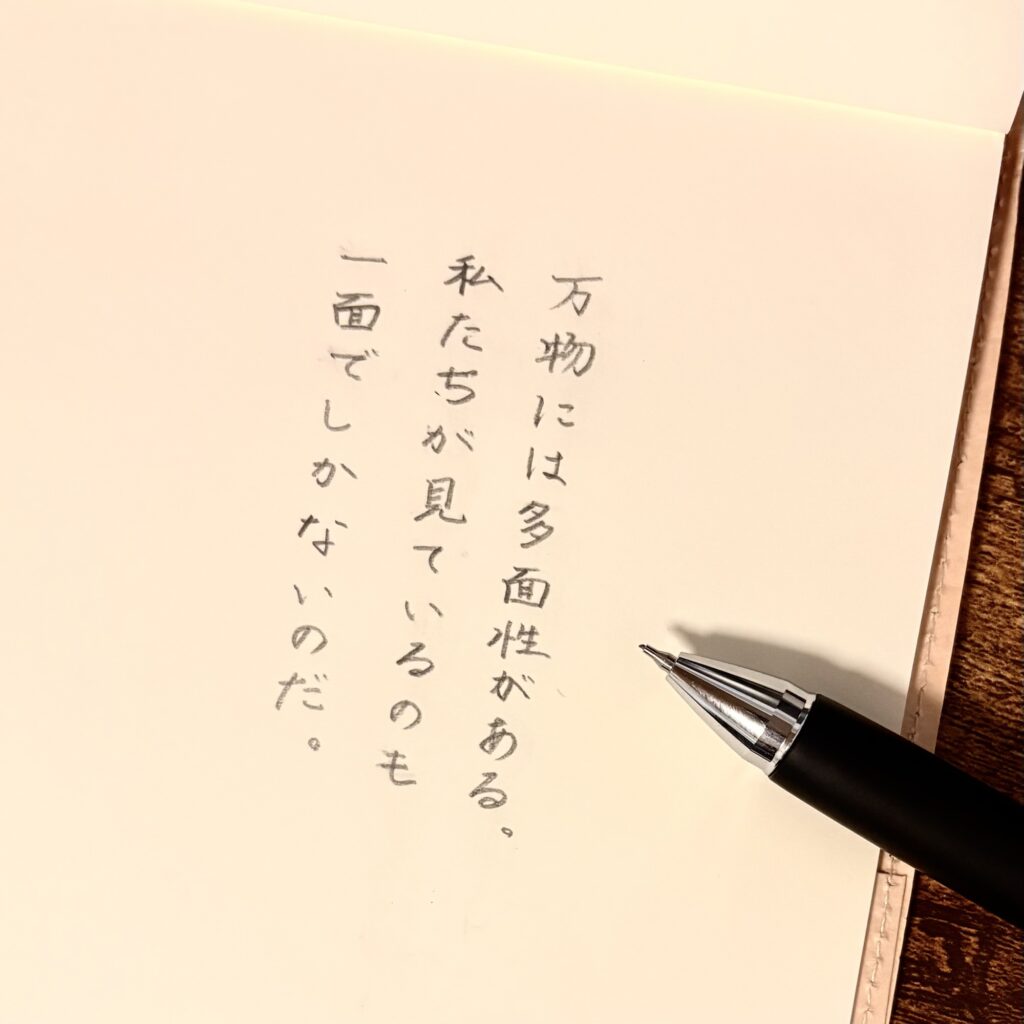 万物には多面性がある。
私たちが見ているのも
一面でしかないのだ。